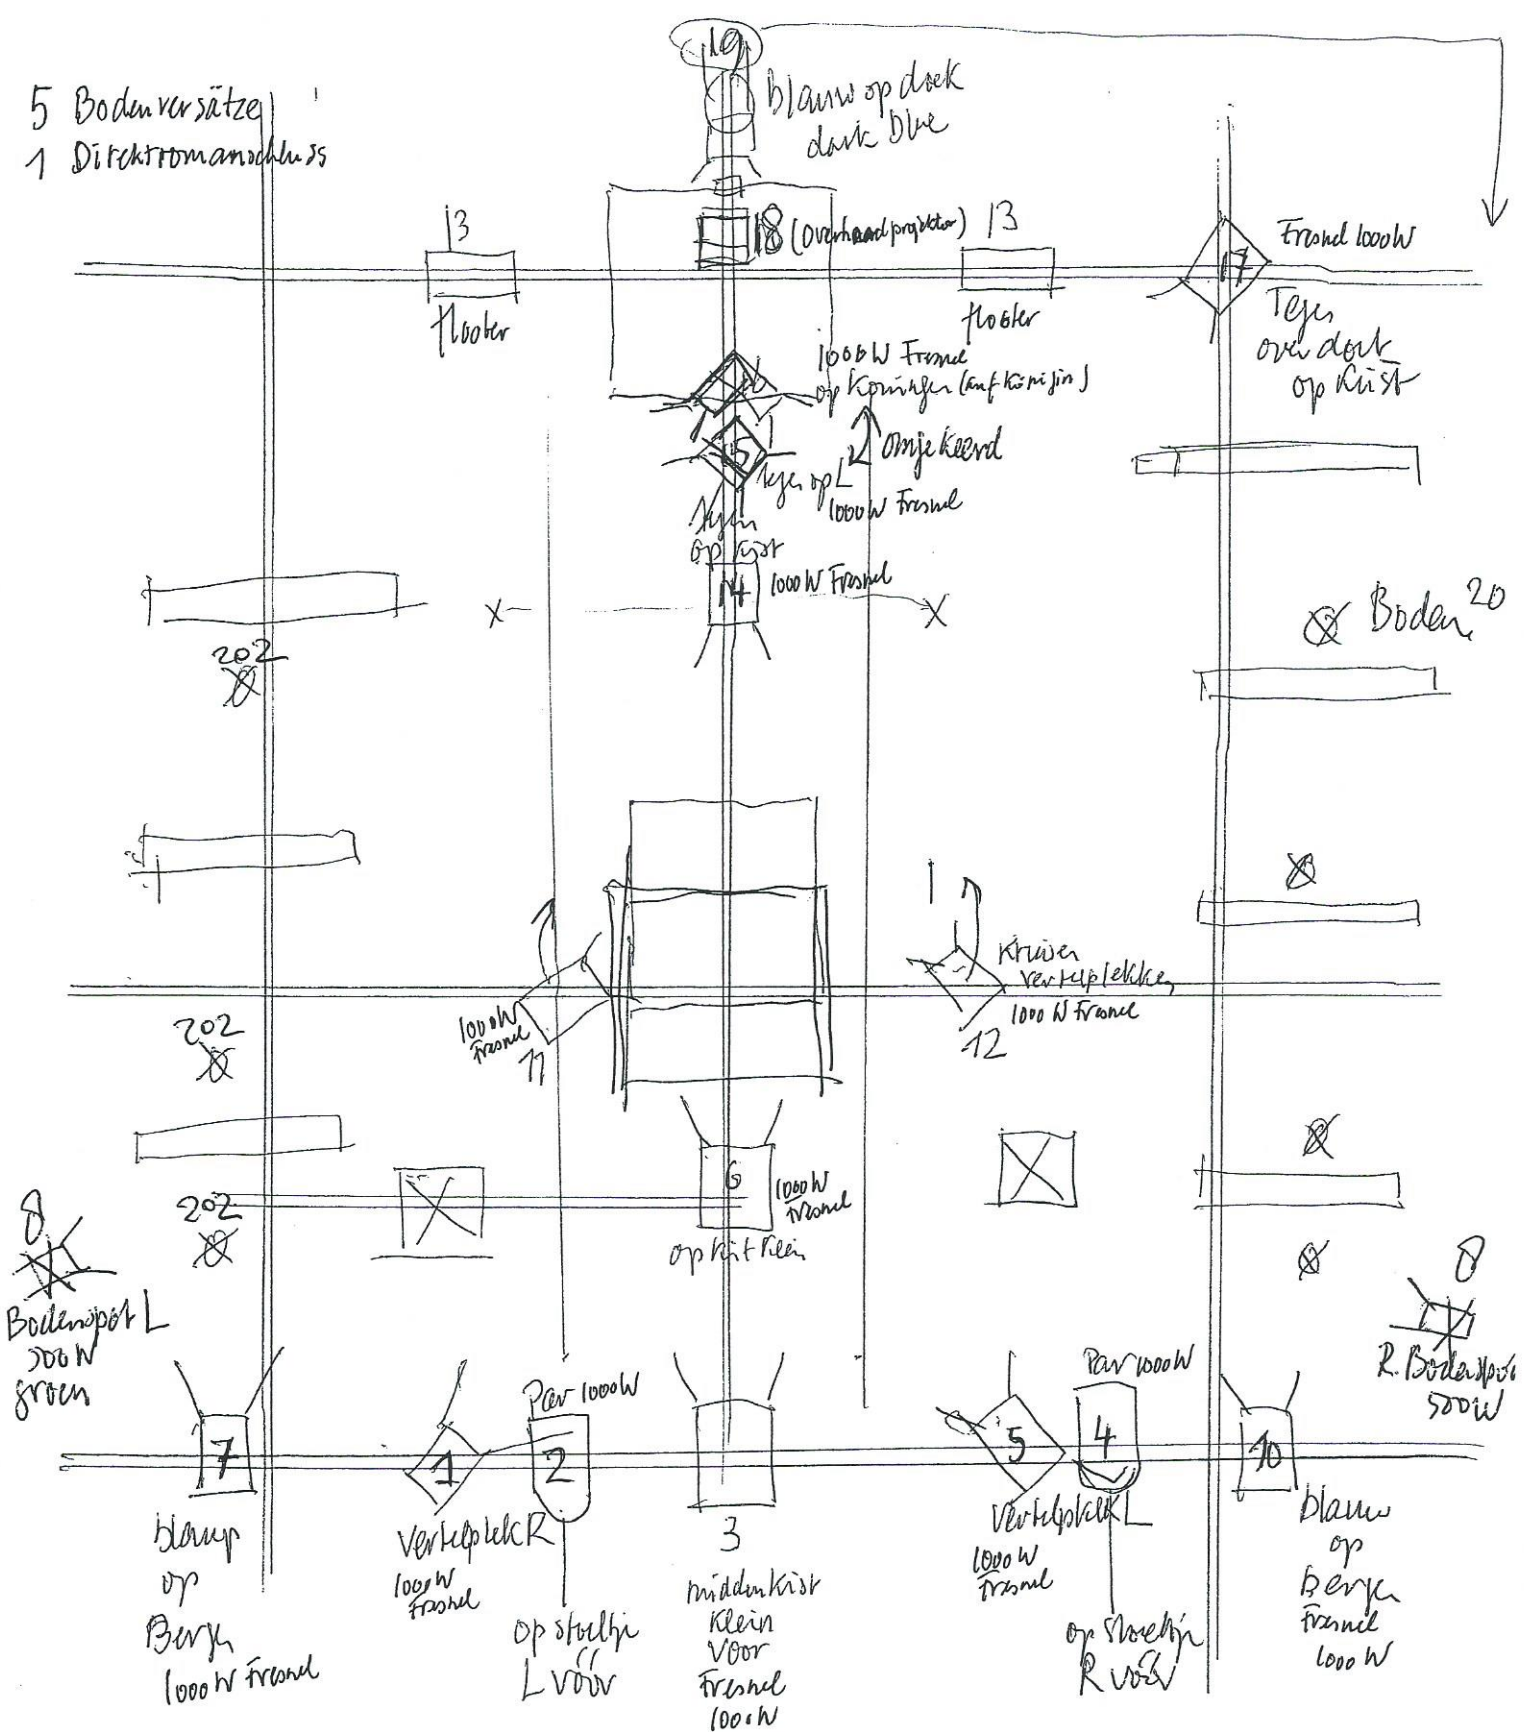 19
blauw op doek
dark blue
5 Bodenversätze
1 Direktromanschluss
13
18 (Overheadprojektor)
13
Fresnel 1000W
17
flooter
flooter
Tegen
over doek
op Kist
1000W Fresnel
op Koningin (auf Königin)
16
omjekeerd
15
tegen op L
1000W Fresnel
Tegen
op Kist
14
1000W Fresnel
X
X
Boden 20
202
Kruisen
vertelplekken
1000W Fresnel
12
1000W
Fresnel
11
202
6
1000W
Fresnel
op Kist Klein
202
8
Bodenspot L
500W
groen
8
R. Bodenspot
500W
Par 1000W
Par 1000W
7
1
2
5
4
10
blauw
op
Bergen
1000W Fresnel
Vertelplek R
1000W
Fresnel
op stoeltje
L vóór
3
midden Kist
Klein
voor
Fresnel
1000W
Vertelplek L
1000W
Fresnel
op stoeltje
R vóór
blauw
op
Bergen
Fresnel
1000W